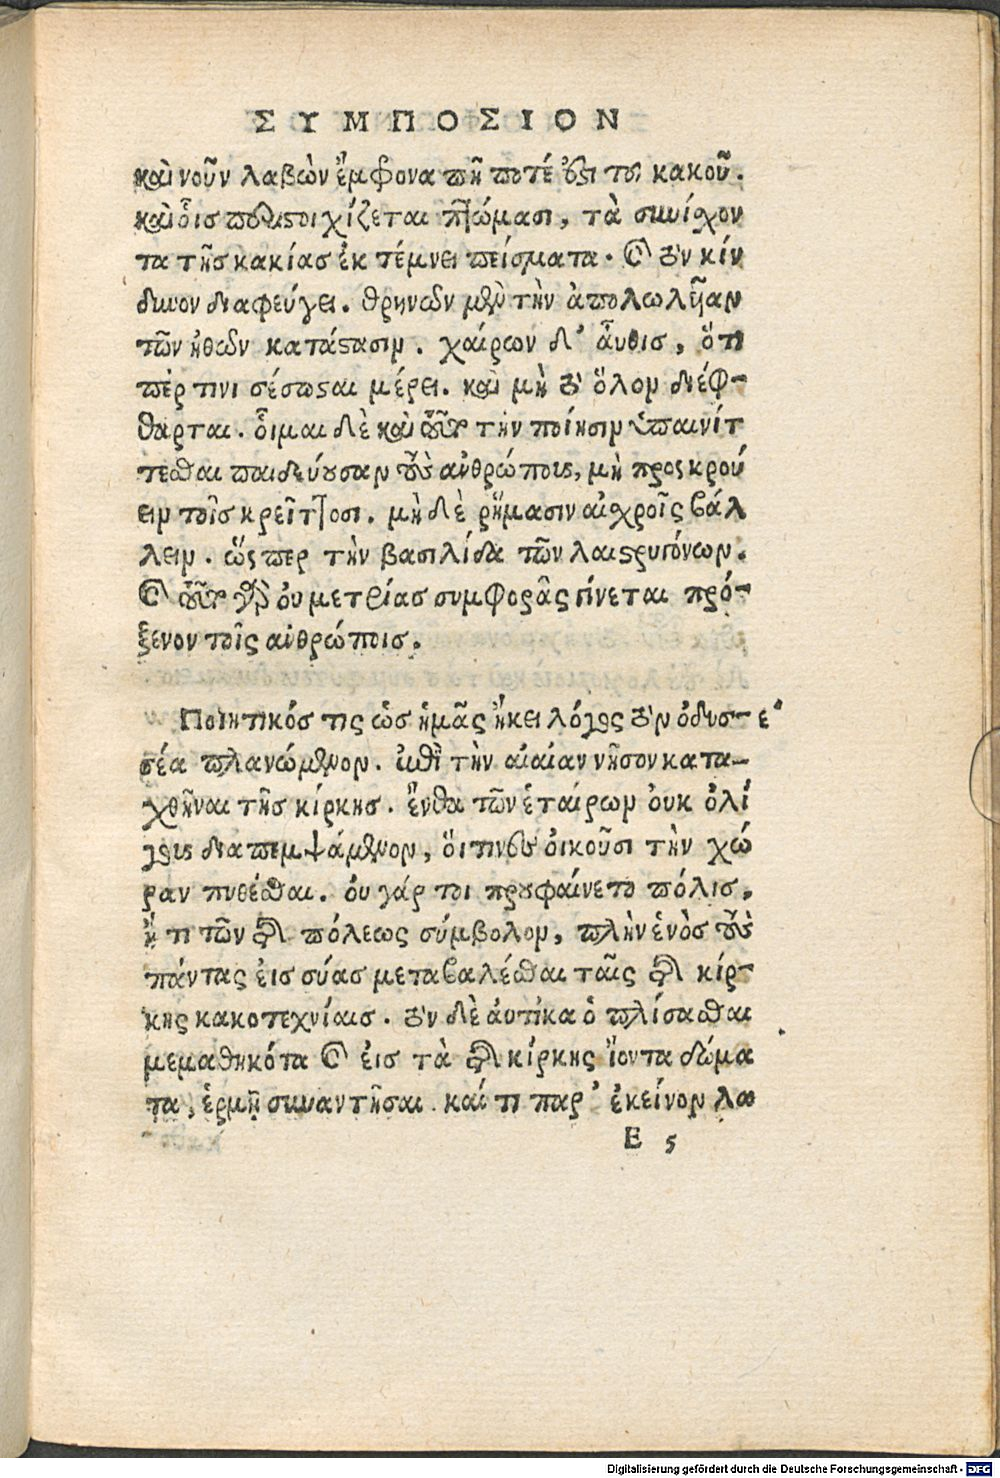 ΣΥΜΠΟΣΙΟΝ
καὶ νοῦν λαβὼν ἔμφρονα πῆ ποτέ ἐστι τοῦ κακοῦ.
καὶ οἷς περιστοιχίζεται πτώμασι, τὰ συνέχον
τα τῆς κακίας ἐκ τέμνει πείσματα. καὶ τὸν κίν
δυνον διαφεύγει. θρηνῶν μὲν τὴν ἀπολωλῆαν
τῶν ἠθῶν κατάστασιν. χαίρων δ' αὖθις, ὅτι
περ τινι σέσωσται μέρει. καὶ μὴ τὸ ὅλον διέφ-
θαρται. οἶμαι δὲ καὶ ταύτην τὴν ποίησιν ὑπαινίτ
τεσθαι παιδεύουσαν τοὺς ἀνθρώπους, μὴ προσκρού
ειν τοῖς κρείττοσι. μὴ δὲ ῥήμασιν αἰχροῖς βάλ
λειν. ὥς περ τὴν βασιλίδα τῶν λαιστρυγόνων.
καὶ τοῦτο γὰρ οὐ μετρίας συμφορᾶς γίνεται πρό-
ξενον τοῖς ἀνθρώποις.
Ποιητικός τις ὡς ἡμᾶς ἥκει λόγος τὸν ὀδυσ-
σέα πλανώμενον. ἐπὶ τὴν αἰαίαν νῆσον κατα-
χθῆναι τῆς κίρκης. ἔνθα τῶν ἑταίρων οὐκ ὀλί
γους διαπεμψάμενον, οἵτινες οἰκοῦσι τὴν χώ
ραν πυθέσθαι. οὐ γάρ τοι προυφαίνετο πόλις,
ἤ τι τῶν τῆς πόλεως σύμβολον, πλὴν ἑνὸς τοὺς
πάντας εἰς σύας μεταβαλέσθαι ταῖς τῆς κίρ-
κης κακοτεχνίαις. τὸν δὲ αὐτίκα ὁ πλίσασθαι
μεμαθηκότα καὶ εἰς τὰ τῆς κίρκης ἰόντα δώμα
τα, ἑρμῆ συναντῆσαι. καί τι παρ' ἐκείνου λα
E 5
Digitalisierung gefördert durch die Deutsche Forschungsgemeinschaft - DFG